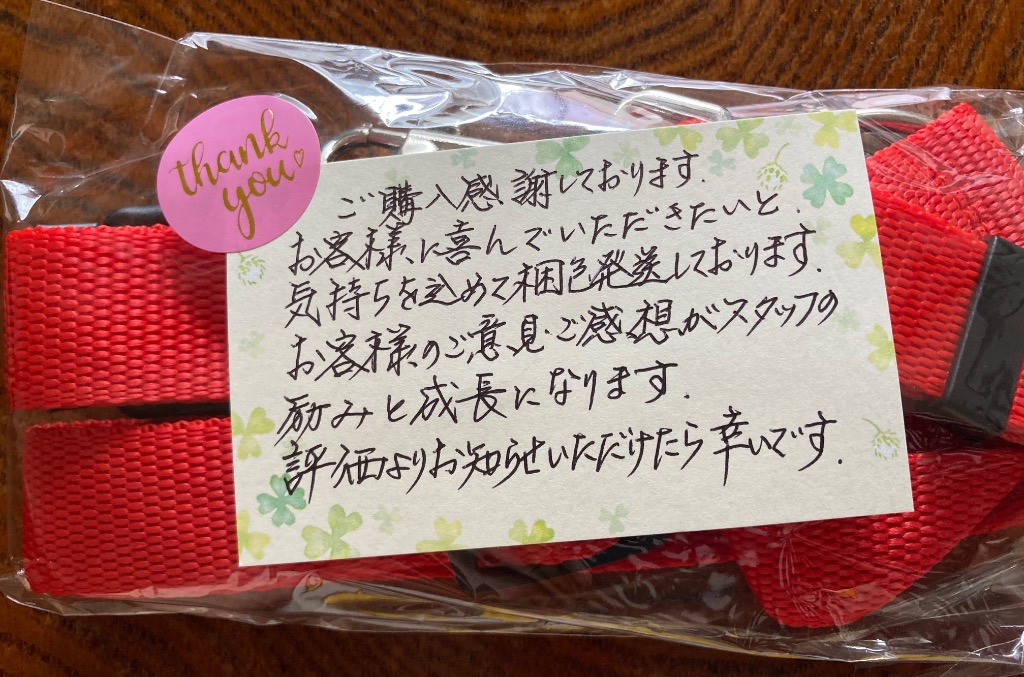 thank
you
ご購入感謝しております.
お客様に喜んでいただきたいと.
気持ちを込めて梱包発送しております.
お客様のご意見・ご感想がスタッフの
励みと成長になります.
評価よりお知らせいただけたら幸いです.